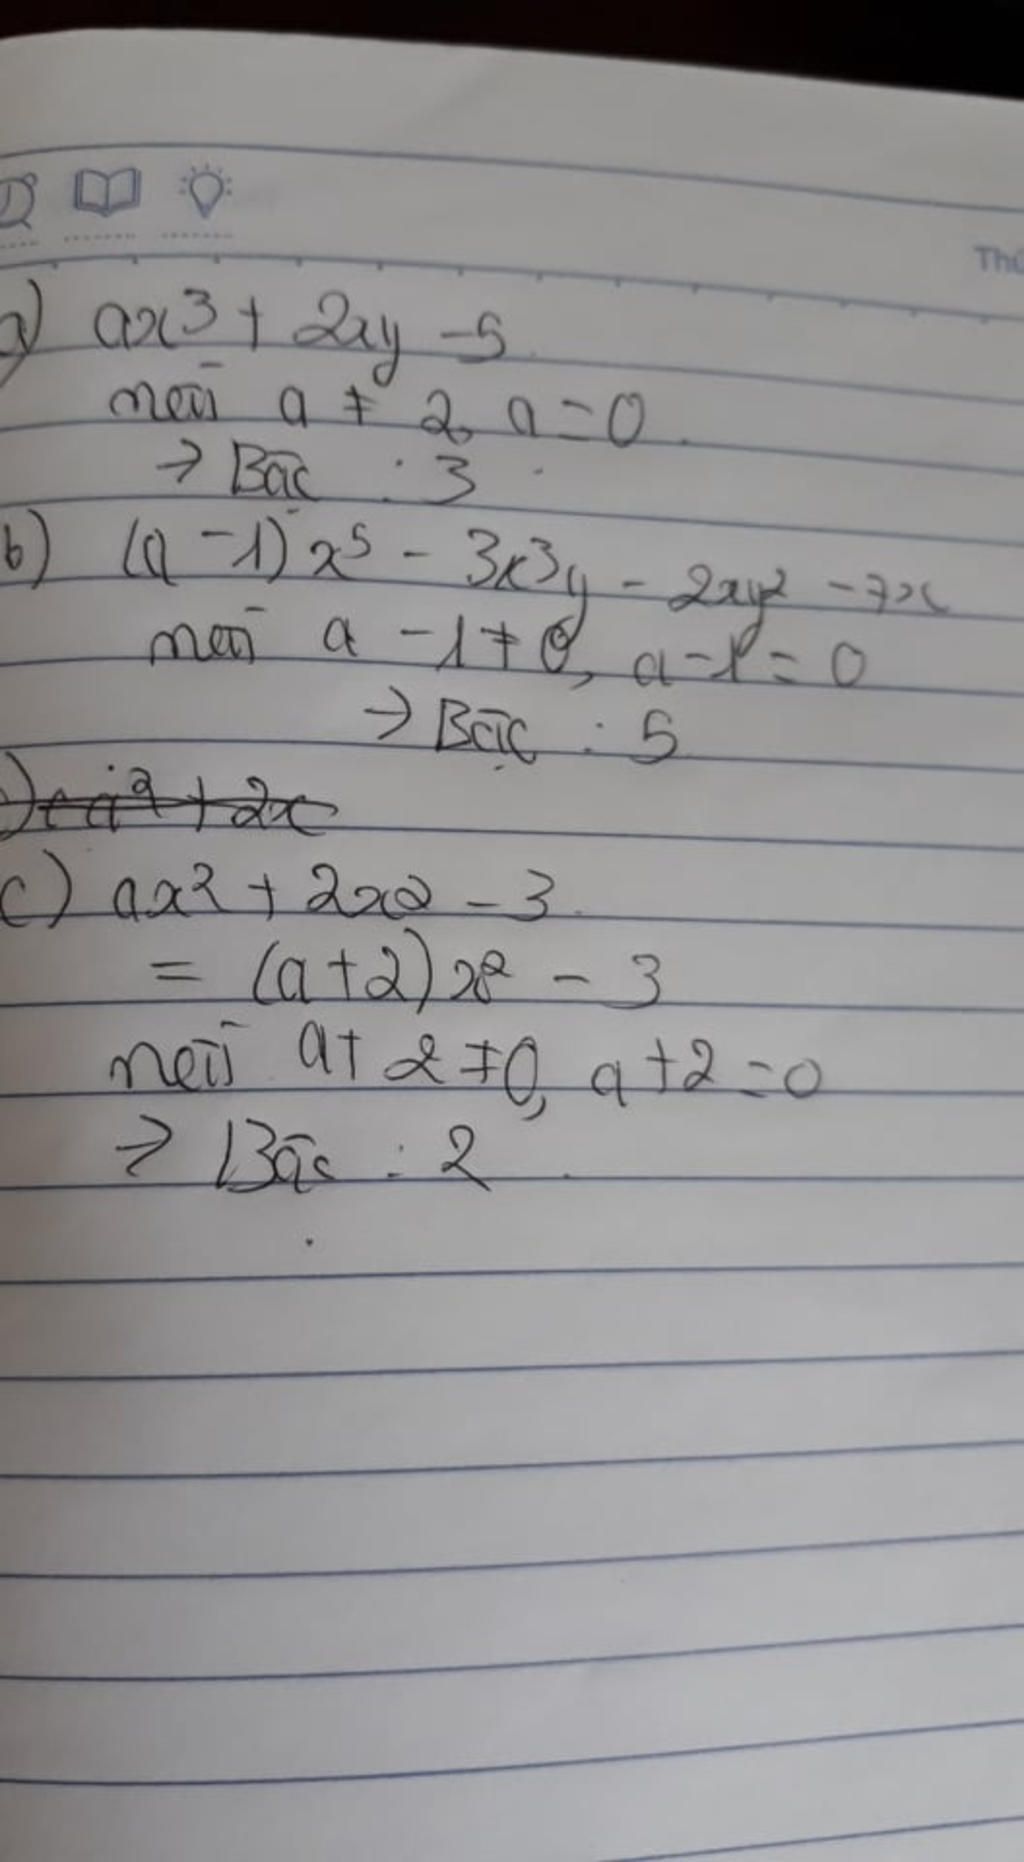 Thứ
a) ax³ + 2xy - 5
nếu a ≠ 2, a = 0
→ Bậc : 3
b) (a - 1) x⁵ - 3x³y - 2xy² - 7x
nếu a - 1 ≠ 0, a - 1 = 0
→ Bậc : 5
c) ax² + 2x² - 3
= (a + 2) x² - 3
nếu a + 2 ≠ 0, a + 2 = 0
→ Bậc : 2